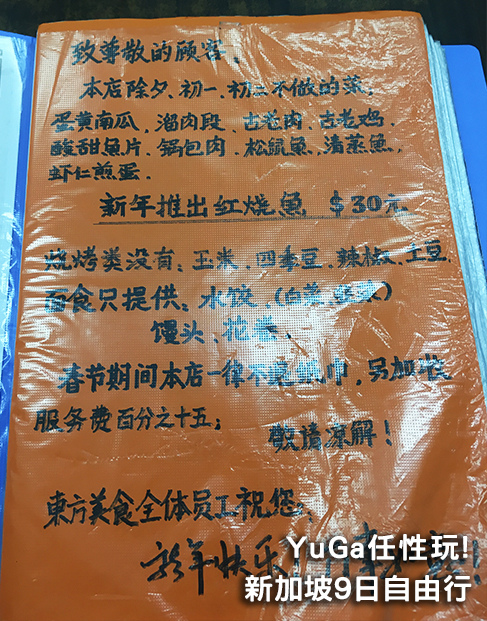 致尊敬的顾客、
本店除夕、初一、初二不做的菜；
蛋黄南瓜、溜肉段、古老肉、古老鸡、
酸甜魚片、锅包肉、松鼠魚、清蒸魚、
虾仁煎蛋.
新年推出红烧魚 $30元
烧烤类没有：玉米、四季豆、辣椒、土豆
面食只提供：水饺、(白菜
馒头、花
春节期间本店一律不 另加收
服务费百分之十五；
敬请谅解！
東方美食全体员工祝您：
新年快乐！
YuGa任性玩!
新加坡9日自由行